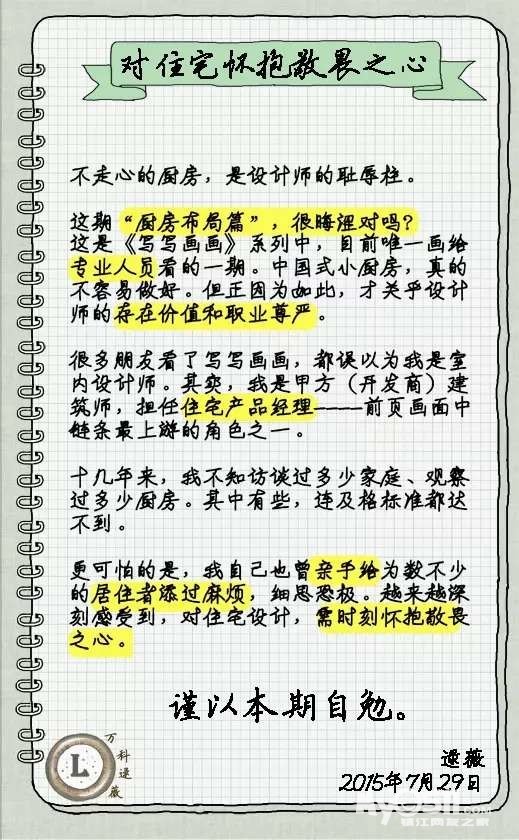 对住宅怀抱敬畏之心
不走心的厨房，是设计师的耻辱柱。
这期“厨房布局篇”，很晦涩对吗？
这是《写写画画》系列中，目前唯一画给
专业人员看的一期。中国式小厨房，真的
不容易做好。但正因为如此，才关乎设计
师的存在价值和职业尊严。
很多朋友看了写写画画，都误以为我是室
内设计师。其实，我是甲方（开发商）建
筑师，担任住宅产品经理——前页画面中
链条最上游的角色之一。
十几年来，我不知访谈过多少家庭、观察
过多少厨房。其中有些，连及格标准都达
不到。
更可怕的是，我自己也曾亲手给为数不少
的居住者添过麻烦，细思恐极。越来越深
刻感受到，对住宅设计，需时刻怀抱敬畏
之心。
谨以本期自勉。
逯薇
2015年7月29日
L
万科逯薇